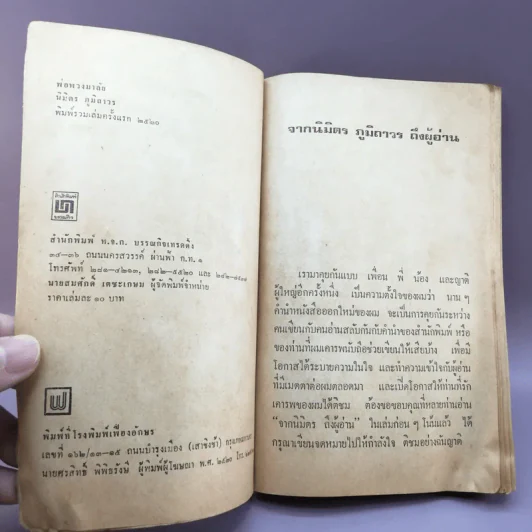 พ่อพวงมาลัย
นิมิตร ภูมิถาวร
พิมพ์รวมเล่มครั้งแรก ๒๕๒๐
สำนักพิมพ์ ห.จ.ก. บรรณกิจเทรดดิ้ง
๓๔-๓๖ ถนนนครสวรรค์ ผ่านฟ้า ก.ท. ๑
โทรศัพท์ ๒๘๑-๔๒๑๓, ๒๘๒-๕๕๒๐ และ
นายสมศักดิ์ เตชะเกษม ผู้จัดพิมพ์จำหน่าย
ราคาเล่มละ ๑๐ บาท
พิมพ์ที่โรงพิมพ์เฟื่องอักษร
เลขที่ ๑๖๒/๑๓-๑๕ ถนนบำรุงเมือง (เสาชิงช้า)
นายศรสิทธิ์ พิพิธรังษี ผู้พิมพ์ผู้โฆษณา พ.ศ. ๒๕๒๐ โทร.
จากนิมิตร ภูมิถาวร ถึงผู้อ่าน
เรามาคุยกันแบบ เพื่อน พี่ น้อง และญาติ
ผู้ใหญ่อีกครั้งหนึ่ง เป็นความตั้งใจของผมว่า นาน ๆ
คำนำหนังสือออกใหม่ของผม จะเป็นการคุยกันระหว่าง
คนเขียนกับคนอ่านสลับกันกับคำนำของสำนักพิมพ์ หรือ
ของท่านที่ผมเคารพนับถือช่วยเขียนให้เสียบ้าง เพื่อมี
โอกาสได้ระบายความในใจ และทำความเข้าใจกับผู้อ่าน
ที่มีเมตตาต่อผมตลอดมา และเปิดโอกาสให้ท่านที่รัก
เคารพของผมได้ติชม ต้องขอขอบคุณที่หลายท่านอ่าน
“จากนิมิตร ถึงผู้อ่าน” ในเล่มก่อน ๆ โน้นแล้ว ได้
กรุณาเขียนจดหมายไปให้กำลังใจ ติชมอย่างฉันญาติ